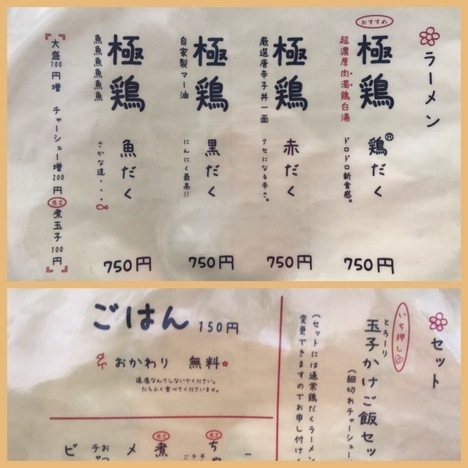 ラーメン
おすすめ
極鶏 鶏だく
超濃厚肉濁鶏白湯
ドロドロ新食感。
750円
極鶏 赤だく
厳選唐辛子丼一面
クセになる辛さ。
750円
極鶏 黒だく
自家製マー油
にんにく最高!!
750円
極鶏 魚だく
魚魚魚魚魚魚
さかな達・・・
750円
大盛100円増 チャーシュー増200円
限定 煮玉子100円
セット
いち押し
とろーり
玉子かけご飯セッ
(細切れチャーシュー
(セットには通常鶏だくラーメン
変更できますのでお申し付け
ごはん 150円
おかわり 無料
遠慮なんてしないでください。
たらふく食べてくださいませ。
限定
ち
限定
煮
メ
おつ
チャ
ビ